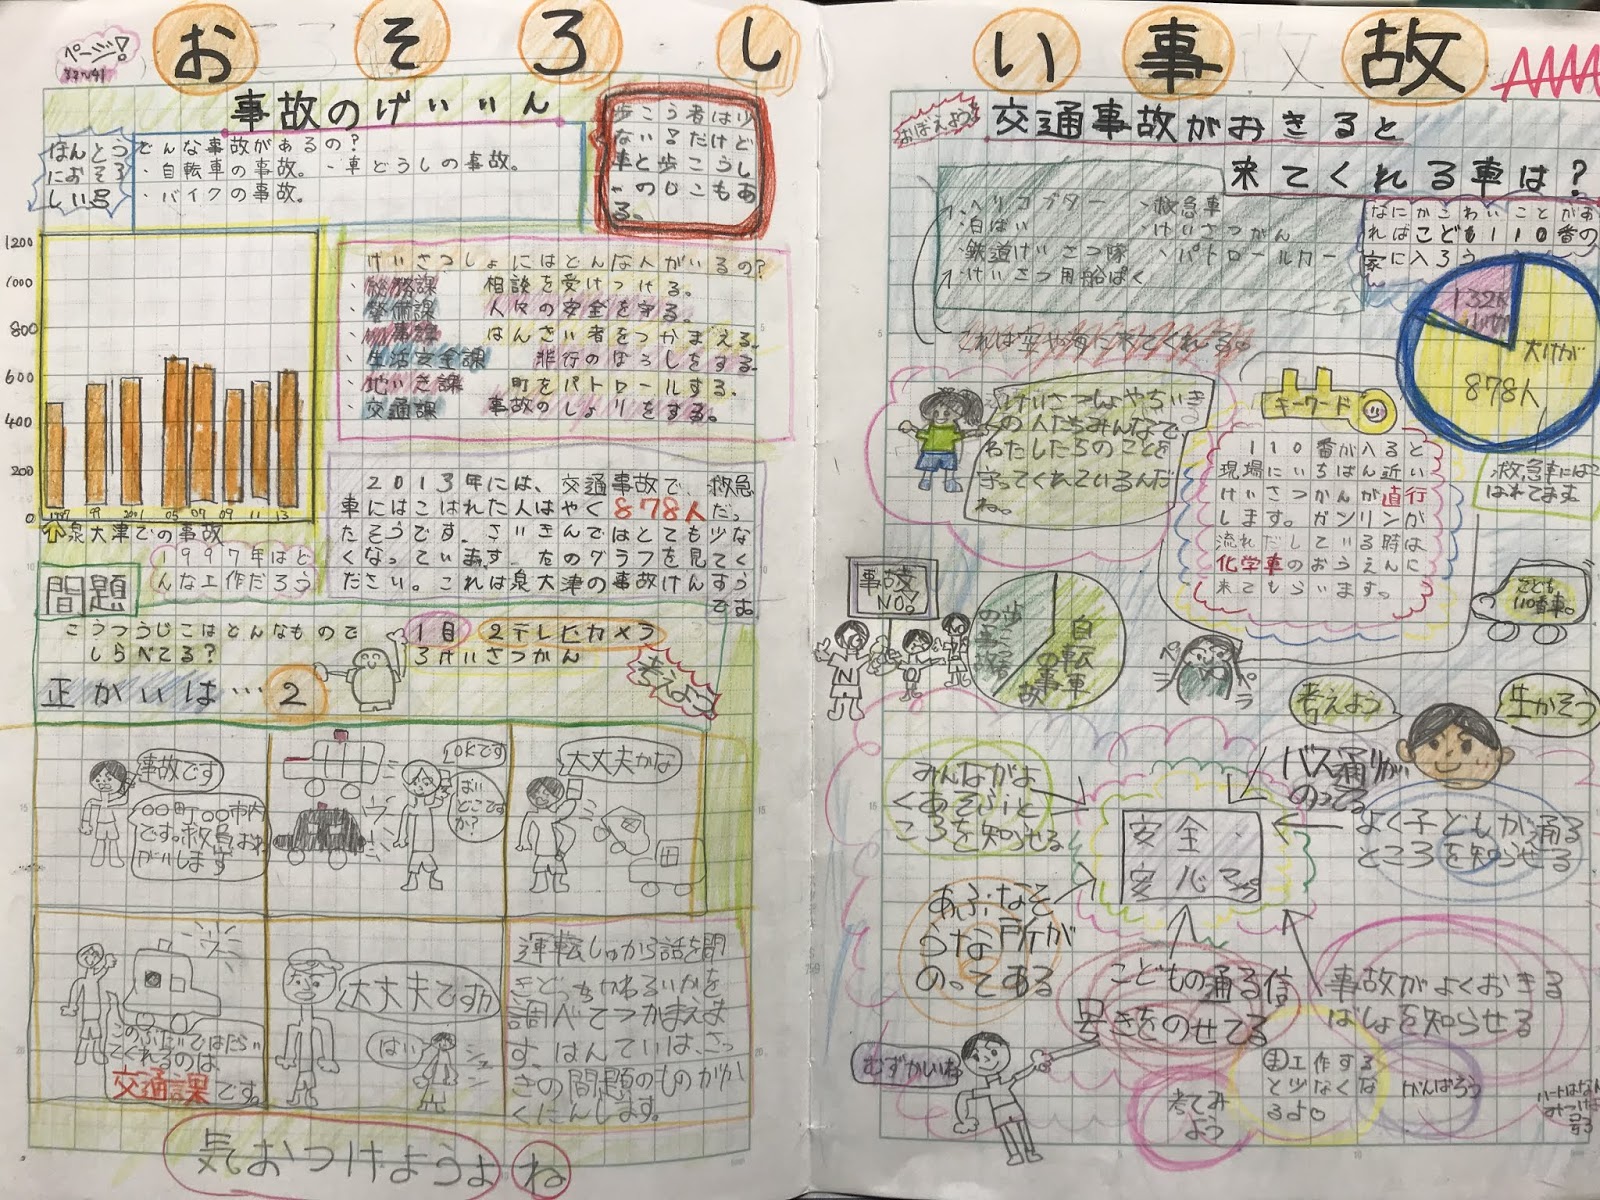 おそろしい事故
ページ!
事故のげいいん
ほんとう
におそろ
しい号
どんな事故があるの?
・自転車の事故。・車どうしの事故。
・バイクの事故。
歩こう者は少
ない!だけど
車と歩こうし
ゃのじこもあ
る。
1200
1000
800
600
400
200
0
1997 99 2001 05 07 09 11 13
泉大津での事故
1997年はど
んな工作だろう
けいさつしょにはどんな人がいるの?
・総務課 相談を受けつける。
・警備課 人々の安全を守る。
・刑事課 はんざい者をつかまえる。
・生活安全課 非行のぼうしをする
・地いき課 町をパトロールする。
・交通課 事故のしょりをする。
2013年には、交通事故で、救急
車にはこばれた人はやく878人だっ
たそうです。さいきんではとても少な
くなっています。左のグラフを見てく
ださい。これは泉大津の事故けんすう
です。
問題
こうつうじこはどんなもので
しらべてる?
1目 2テレビカメラ
3けいさつかん
考えよう
正かいは…2
事故です
〇〇町〇〇市内
です。救急おね
がいします
OKです
はい
どこです
か?
大丈夫かな
このぶたいではたらい
てくれるのは
交通課です。
大丈夫ですか
はい
運転しゅから話を聞
きどっちがわるいかを
調べてつかまえま
す。はんていは、さっ
きの問題のものがか
くにんします。
気おつけようよね
おぼえよう
交通事故がおきると
来てくれる車は?
・ヘリコプター ・救急車
・白ばい ・けいさつかん
・鉄道けいさつ隊 ・パトロールカー
・けいさつ用船ぱく
これは空や海に来てくれる。
なにかこわいことがあ
ればこども110番の
家に入ろう
大けが
878人
救急車にはこ
ばれてます
けいさつしょやちいき
の人たちみんなで
わたしたちのことを
守ってくれているんだ
ね。
キーワード
110番が入ると
現場にいちばん近い
けいさつかんが直行
します。ガソリンが
流れだしている時は
化学車のおうえんに
来てもらいます。
こども
110番車。
事故
NO!
N
O
歩こう者の事故
自転車の事故
ペラペラ
考えよう
生かそう
みんながよ
くあそぶと
ころを知らせる
バス通りが
のってる
よく子どもが通る
ところを知らせる
安全・
安心マップ
あぶなそ
うな所が
のってある
こどもの通る信
号きをのせてる
事故がよくおきる
ばしょを知らせる
むずかしいね
考てみ
よう
工作する
と少なくな
るよ。
がんばろう